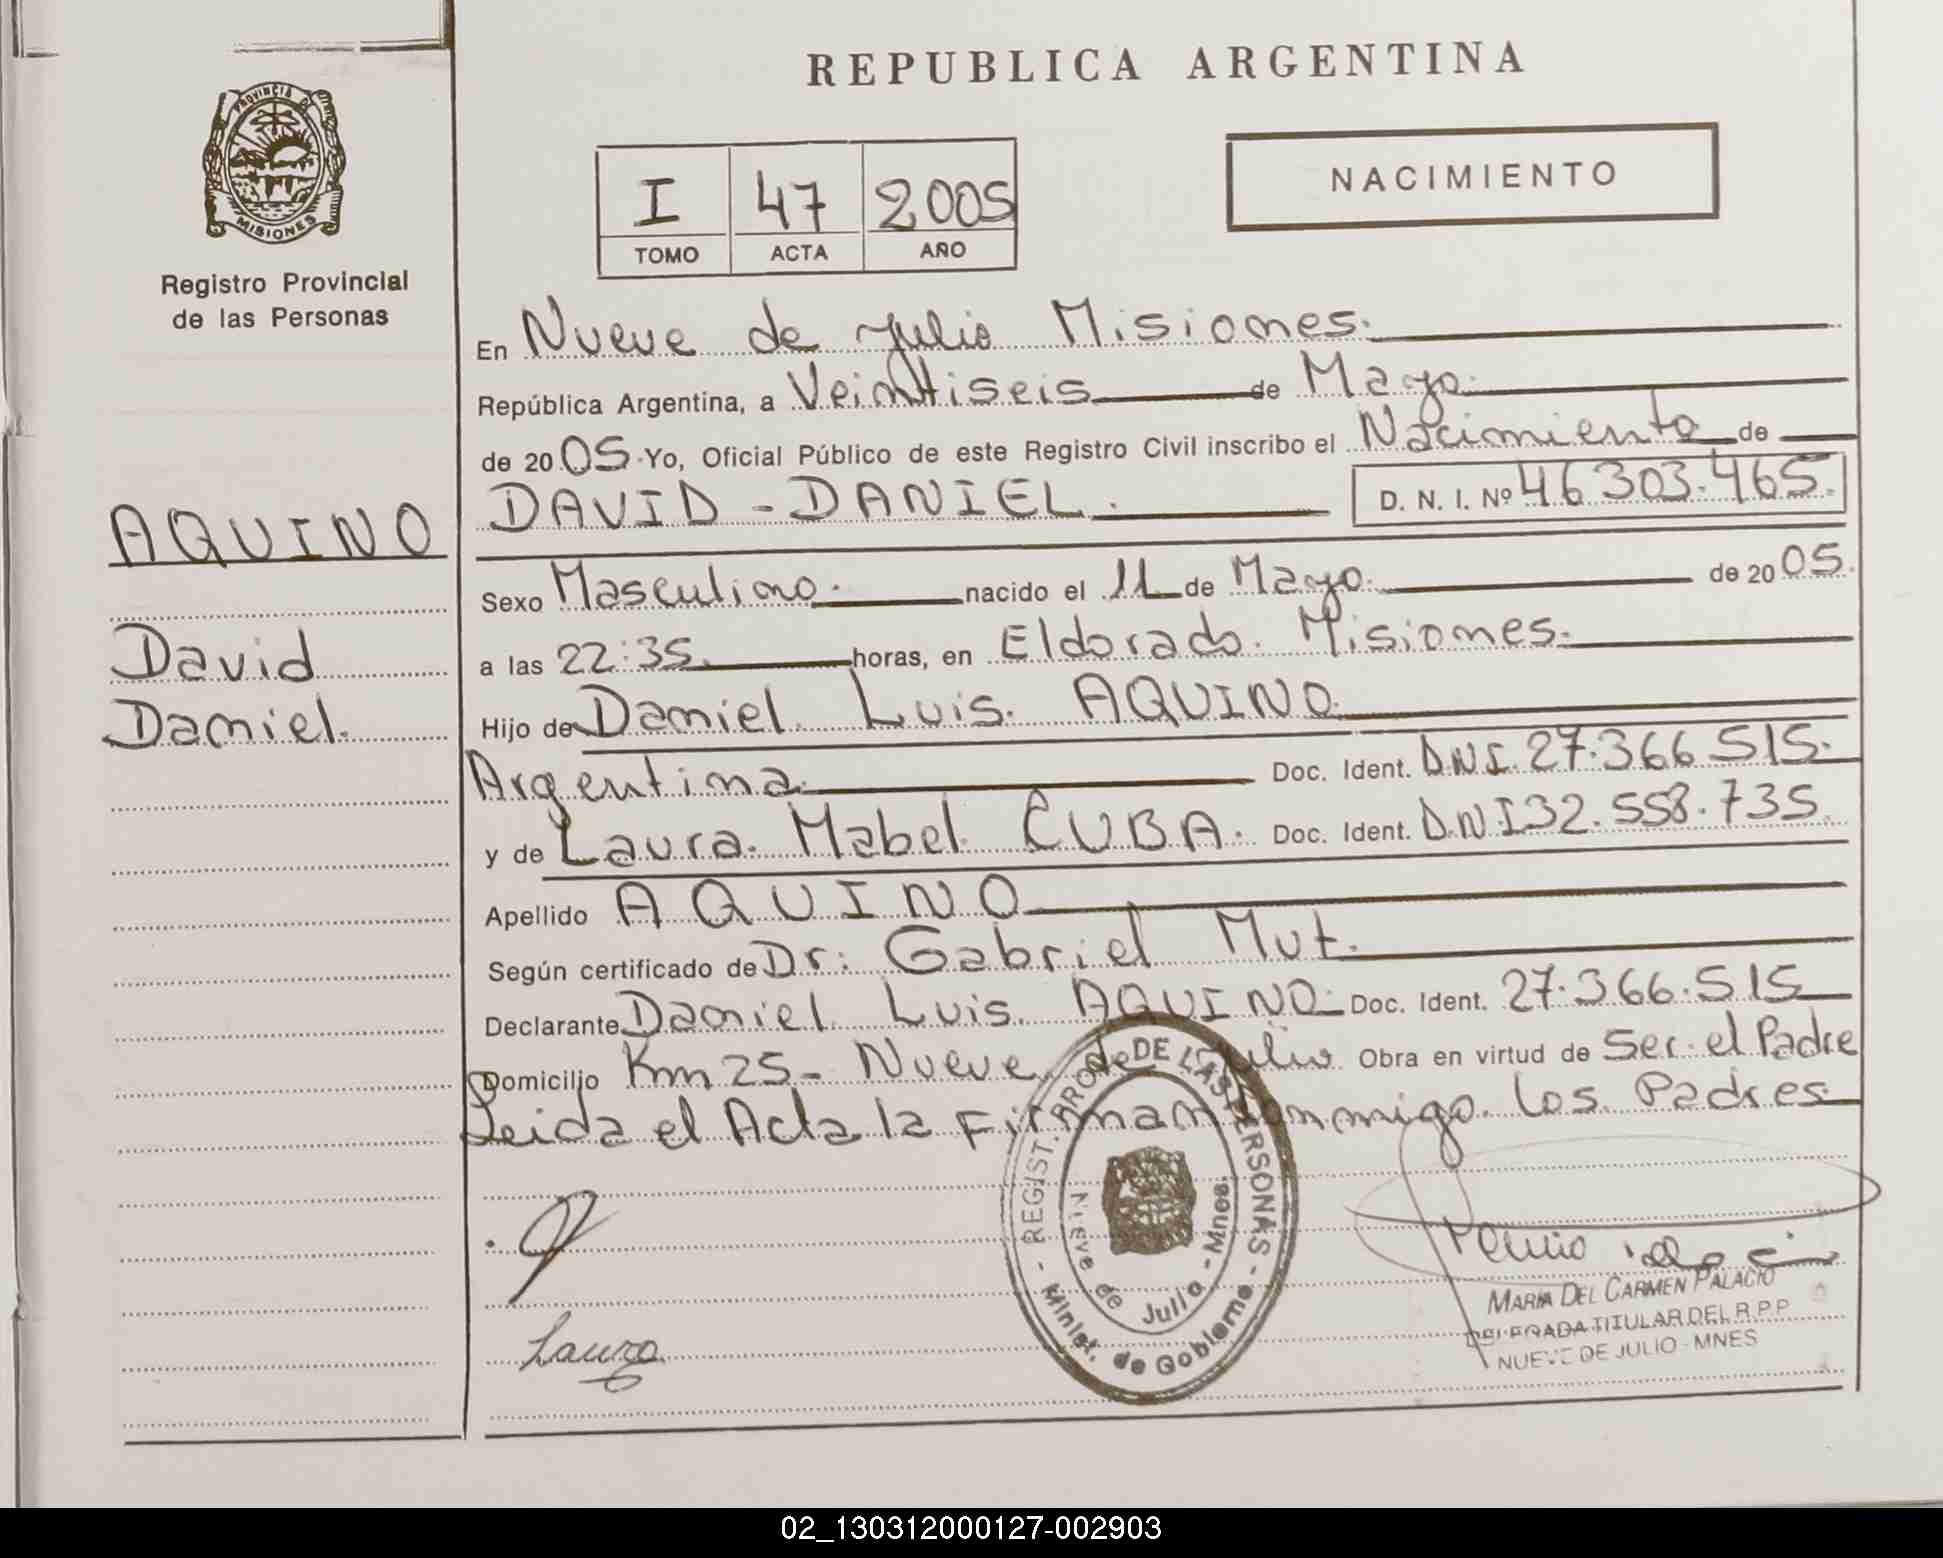 REPUBLICA ARGENTINA
PROVINCIA DE
MISIONES
Registro Provincial
de las Personas
I 47 2005
TOMO ACTA AÑO
NACIMIENTO
AQUINO
David
Daniel.
En Nueve de Julio Misiones.
República Argentina, a Veintiseis de Mayo.
de 2005. Yo, Oficial Público de este Registro Civil inscribo el Nacimiento de
DAVID - DANIEL. D. N. I. Nº 46 303.465.
Sexo Masculino. nacido el 11 de Mayo. de 2005.
a las 22:35. horas, en Eldorado. Misiones.
Hijo de Daniel. Luis. AQUINO.
Argentina. Doc. Ident. DNI. 27.366 515.
y de Laura. Mabel. CUBA. Doc. Ident. D.N.I 32.558.735.
Apellido AQUINO
Según certificado de Dr: Gabriel Mut.
Declarante Daniel Luis. AQUINO. Doc. Ident. 27.366.515
Domicilio Km 25 - Nueve de Julio Obra en virtud de Ser el Padre
Leida el Acta la Firman conmigo. los Padres.
REGIST. PRO DE LAS PERSONAS - Minist. de Gobierno -
Nueve de Julio - Mnes.
Laura
MARIA DEL CARMEN PALACIO
DELEGADA TITULAR DEL R.P.P.
NUEVE DE JULIO - MNES
02_130312000127-002903